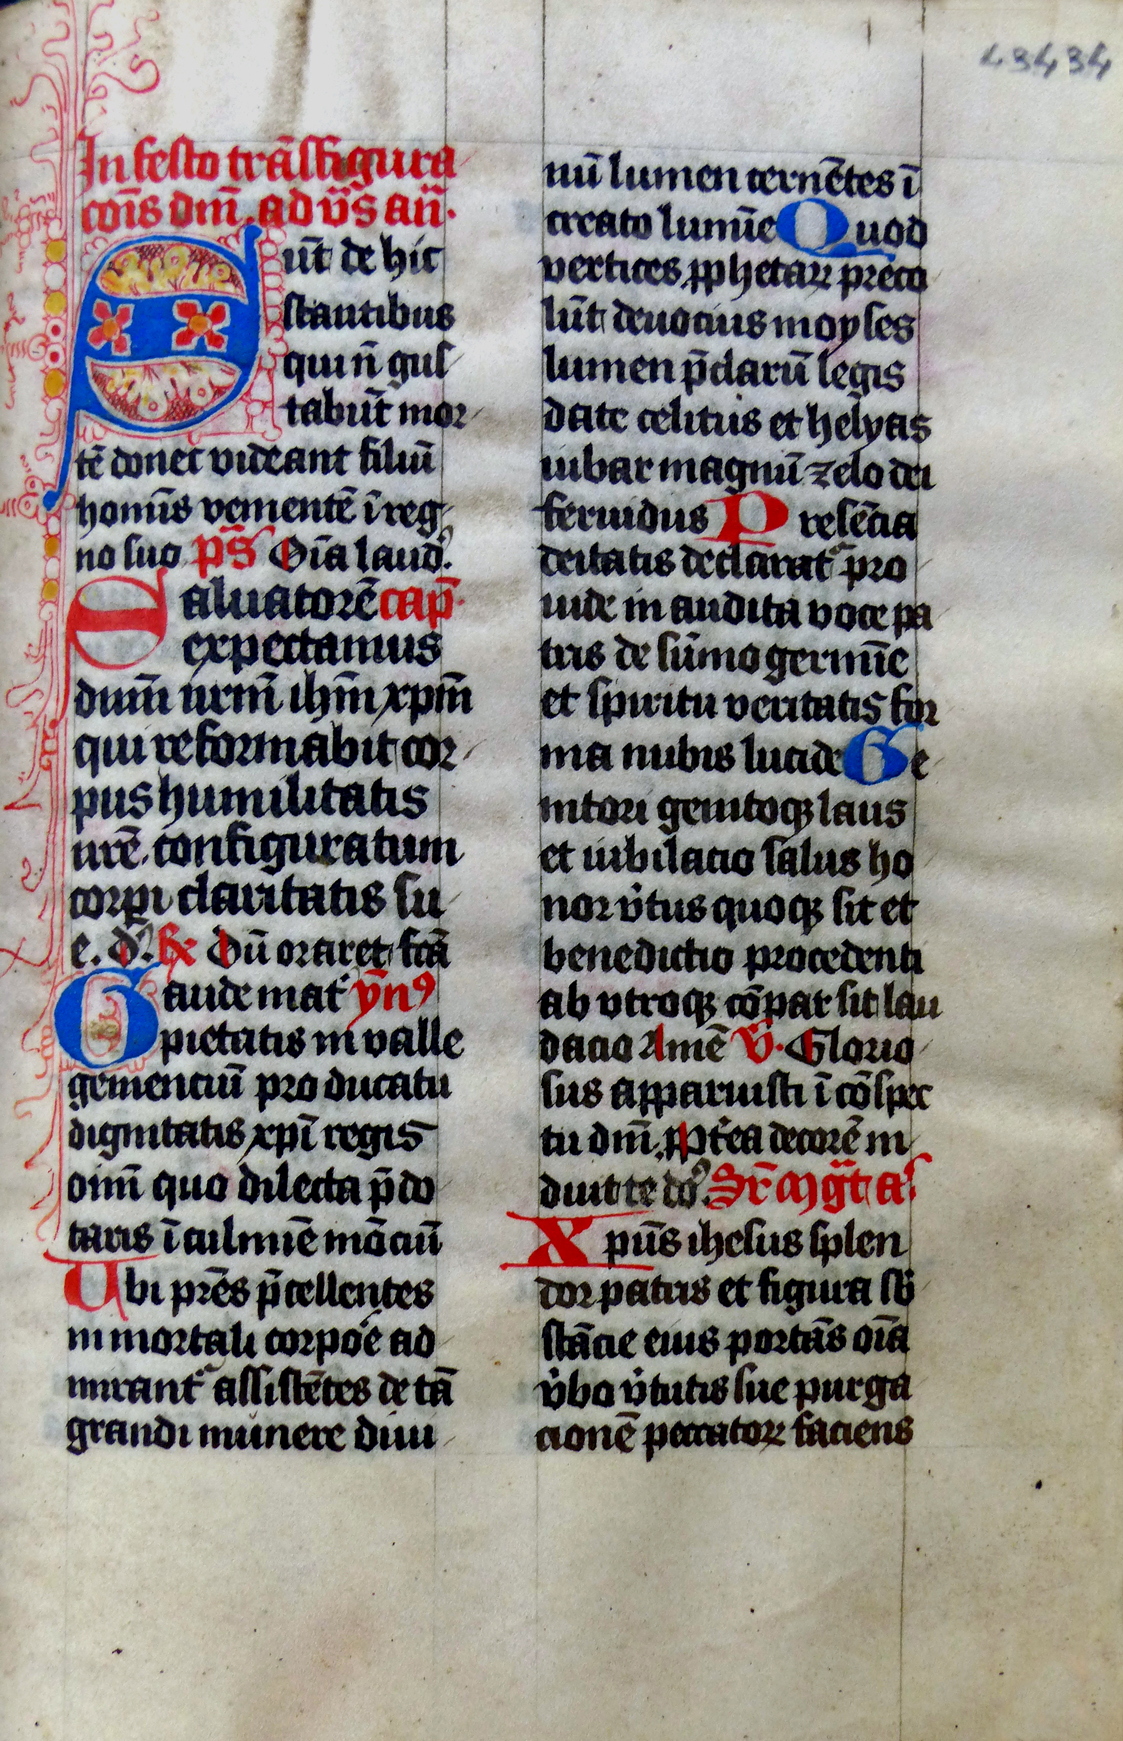 43434
In festo trāsfigura
cōis dm̄. ad vs̄ añ.
Sūt de hic
stantibus
qui n̄ gus
tabūt mor
tē donec videant filiū
homīs venientē ī reg
no suo. ps̄ Oīa laud̾.
Saluatorē cap̄.
expectamus
dnm̄ nrm̄ ihm̄ xpm̄
qui reformabit cor
pus humilitatis
nrē. configuratum
corpi claritatis su
e. d̾. ℟ Dū oraret. fcā
Gaude mat̾ ẏnꝰ
pietatis in valle
gemenciū pro ducatu
dignitatis xpī regis
oīm quo dilecta p̄do
taris ī culmīe mōciū
Ubi prēs p̄cellentes
in mortali corpoē ad
mirant᷑ assistētes de tā
grandi munere diui
nū lumen cernētes ī
creato lumīe Quod
vertices ꝓphetaꝝ preco
lūt deuocius moyses
lumen p̄clarū legis
date celitus et helyas
iubar magnū zelo dei
feruidus Presēcia
deitatis declarat᷑ pro
uide in audita voce pa
tris de sūmo germīe
et spiritu veritatis for
ma nubis lucide Ge
nitori genitoqꝫ laus
et iubilacio salus ho
nor v̾tus quoqꝫ sit et
benedictio procedenti
ab vtroqꝫ cōpar sit lau
dacio Amē ℣. Glorio
sus apparuisti ī cōspec
tu dm̄. Ppt̾ea decorē in
duit te do᷒. Sr̄ Mḡt a᷒
Xpūs ihesus splen
dor patris et figura sb̾
stācie eius portās oīa
v̾bo v̾tutis sue purga
cionē peccatoꝝ faciens